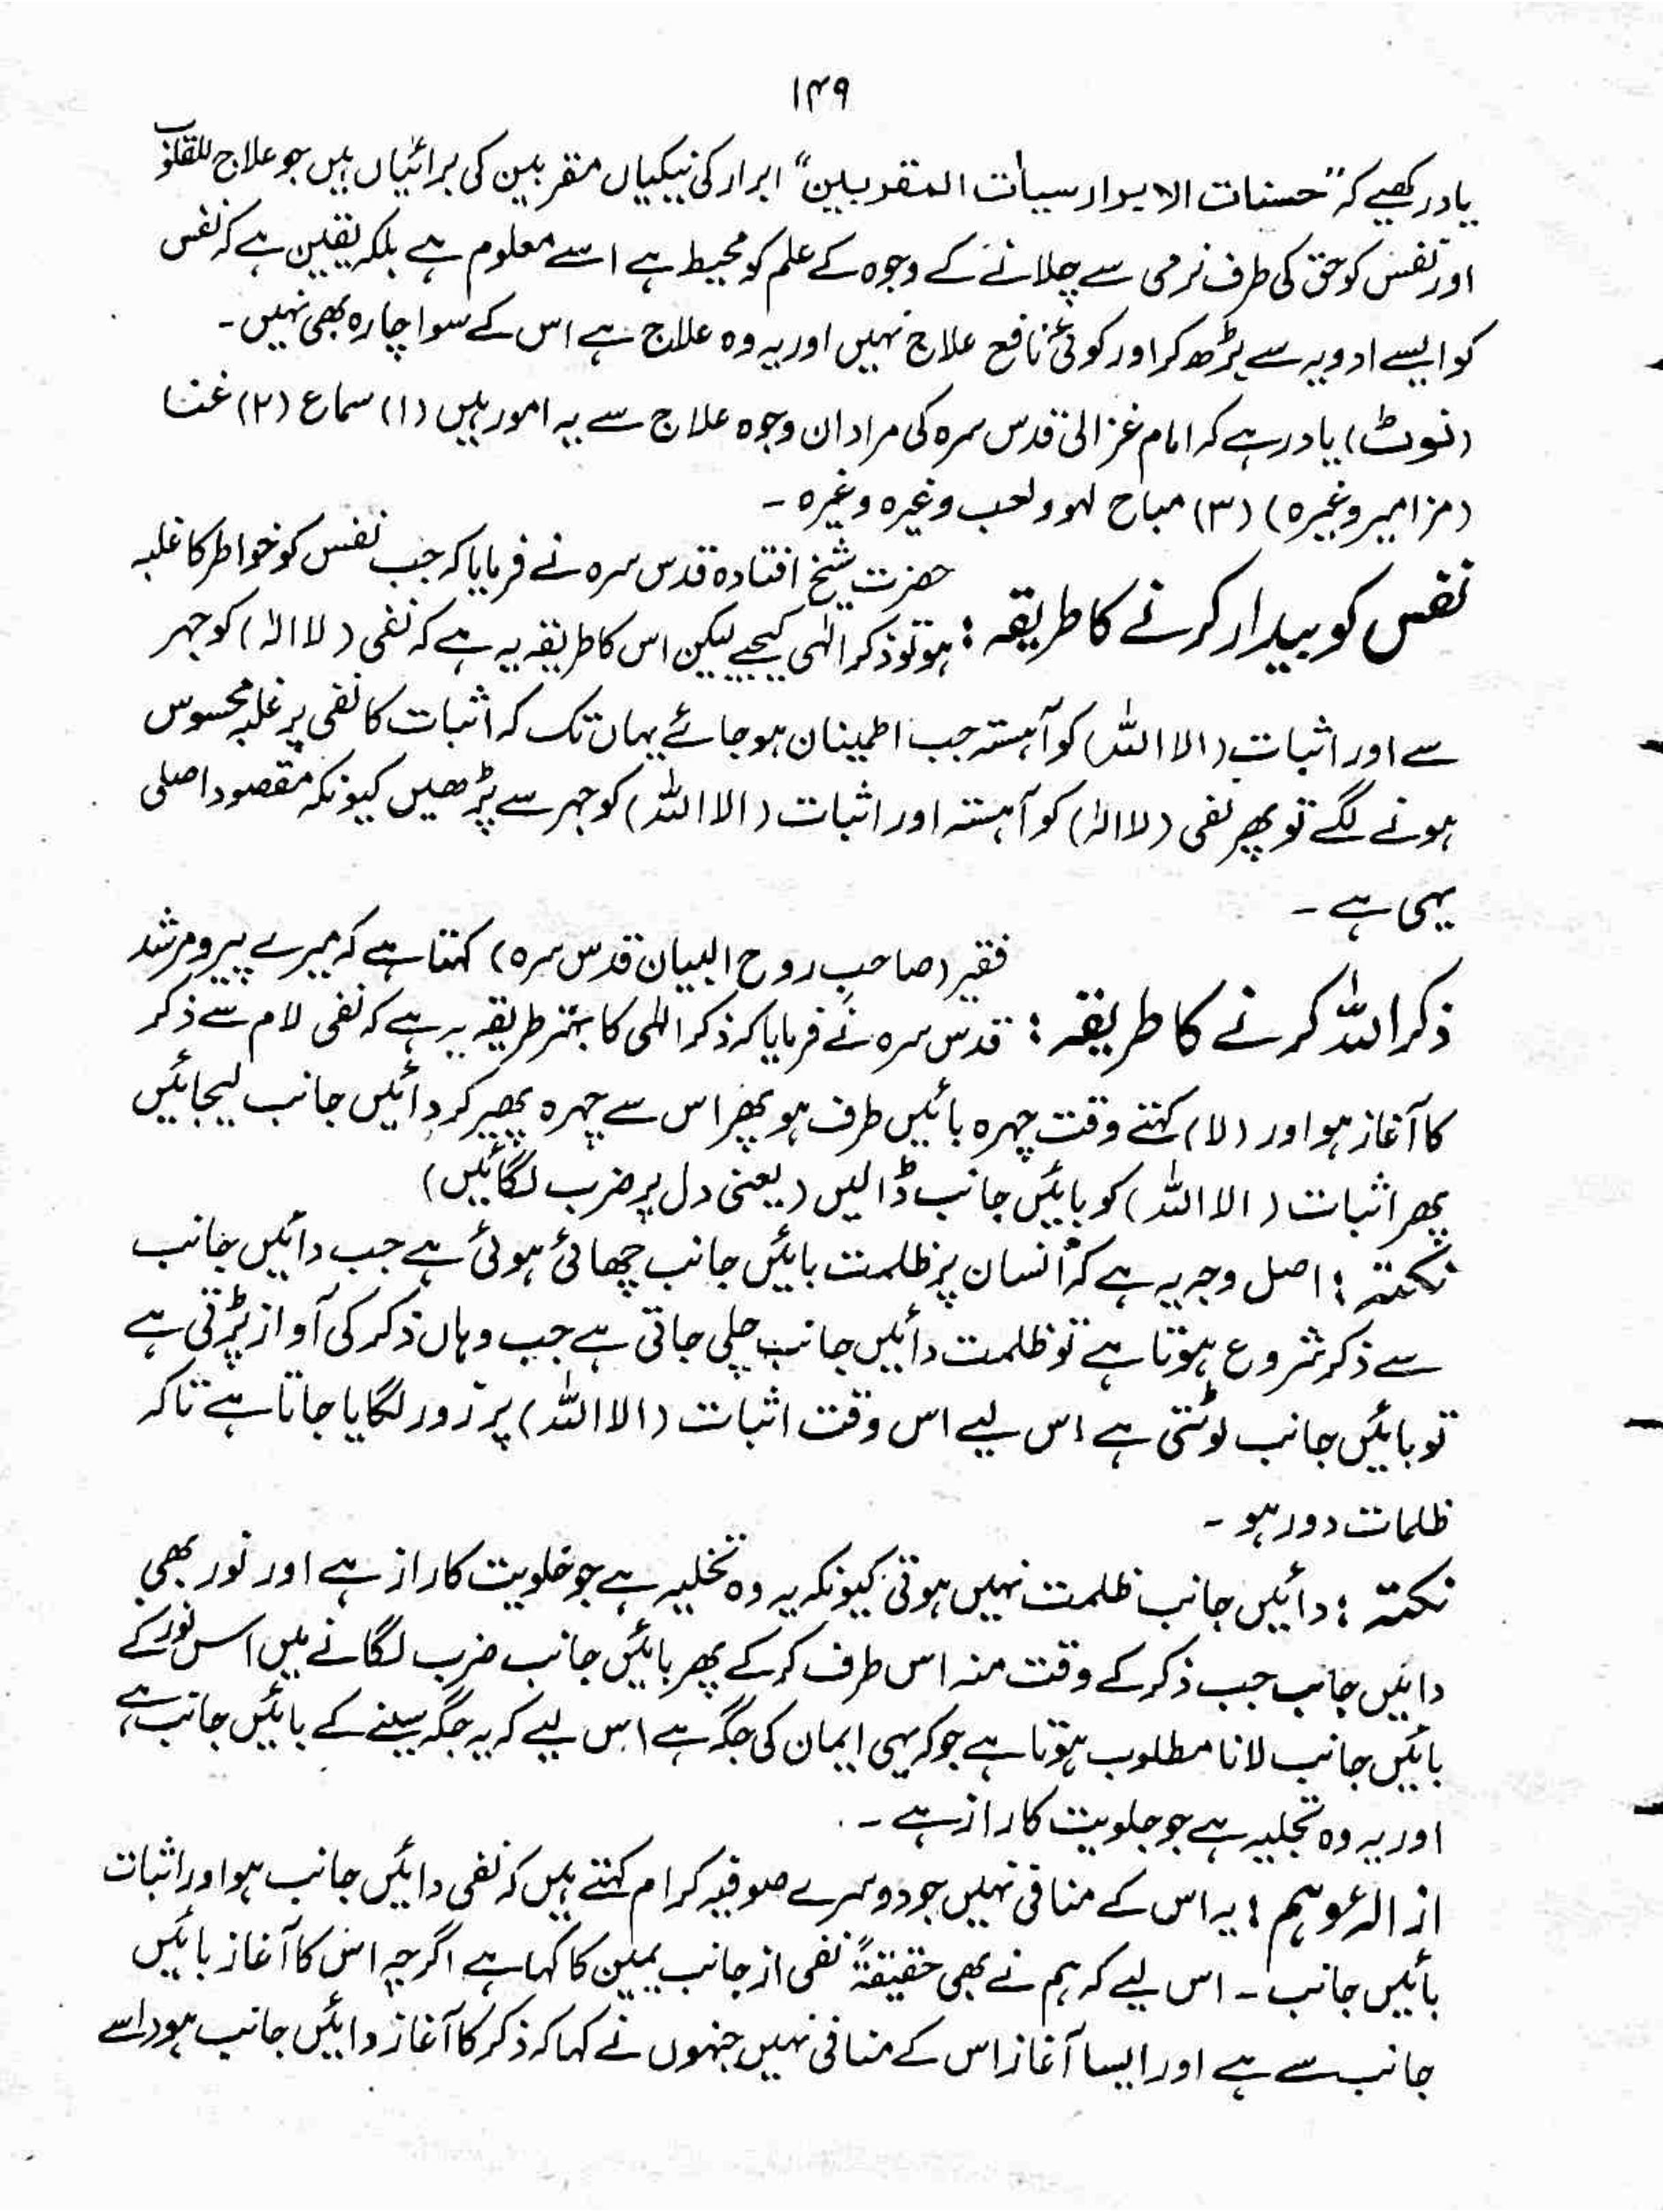 ۱۴۹
یاد رکھیے کہ "حسنات الابرار سیأت المقربین" ابرار کی نیکیاں مقربین کی برائیاں ہیں جو علاج للقلوب
اور نفس کو حق کی طرف نرمی سے چلانے کے وجوہ کے علم کو محیط ہے اسے معلوم ہے بلکہ یقین ہے کہ نفس
کو ایسے ادویہ سے بڑھ کر اور کوئی نافع علاج نہیں اور یہ وہ علاج ہے اس کے سوا چارہ بھی نہیں۔
(نوٹ) یاد رہے کہ امام غزالی قدس سرہ کی مراد ان وجوہ علاج سے یہ امور ہیں (۱) سماع (۲) غنا
(مزامیر وغیرہ) (۳) مباح لہو ولعب وغیرہ وغیرہ۔
نفس کو بیدار کرنے کا طریقہ : حضرت شیخ افتادہ قدس سرہ نے فرمایا کہ جب نفس کو خواطر کا غلبہ
ہو تو ذکر الٰہی کیجیے لیکن اس کا طریقہ یہ ہے کہ نفی (لا الہ) کو جہر
سے اور اثبات (الا اللہ) کو آہستہ جب اطمینان ہو جائے یہاں تک کہ اثبات کا نفی پر غلبہ محسوس
ہونے لگے تو پھر نفی (لا الہ) کو آہستہ اور اثبات (الا اللہ) کو جہر سے پڑھیں کیونکہ مقصود اصلی
یہی ہے۔
ذکر اللہ کرنے کا طریقہ : فقیر (صاحب روح البیان قدس سرہ) کہتا ہے کہ میرے پیر و مرشد
قدس سرہ نے فرمایا کہ ذکر الٰہی کا بہتر طریقہ یہ ہے کہ نفی لام سے ذکر
کا آغاز ہو اور (لا) کہتے وقت چہرہ بائیں طرف ہو پھر اس سے چہرہ پھیر کر دائیں جانب لیجائیں
پھر اثبات (الا اللہ) کو بائیں جانب ڈالیں (یعنی دل پر ضرب لگائیں)
نکتہ : اصل وجہ یہ ہے کہ انسان پر ظلمت بائیں جانب چھائی ہوئی ہے جب دائیں جانب
سے ذکر شروع ہوتا ہے تو ظلمت دائیں جانب چلی جاتی ہے جب وہاں ذکر کی آواز پڑتی ہے
تو بائیں جانب لوٹتی ہے اس لیے اس وقت اثبات (الا اللہ) پر زور لگایا جاتا ہے تاکہ
ظلمات دور ہو۔
نکتہ : دائیں جانب ظلمت نہیں ہوتی کیونکہ یہ وہ تخلیہ ہے جو خلویت کا راز ہے اور نور بھی
دائیں جانب جب ذکر کے وقت منہ اس طرف کر کے پھر بائیں جانب ضرب لگانے میں اس نور کے
بائیں جانب لانا مطلوب ہوتا ہے جو کہ یہی ایمان کی جگہ ہے اس لیے کہ یہ جگہ سینے کے بائیں جانب ہے
اور یہ وہ تجلیہ ہے جو جلویت کا راز ہے۔
ازالہ وہم : یہ اس کے منافی نہیں جو دوسرے صوفیہ کرام کہتے ہیں کہ نفی دائیں جانب ہو اور اثبات
بائیں جانب۔ اس لیے کہ ہم نے بھی حقیقۃً نفی از جانب یمین کا کہا ہے اگرچہ اس کا آغاز بائیں
جانب سے ہے اور ایسا آغاز اس کے منافی نہیں جنہوں نے کہا کہ ذکر کا آغاز دائیں جانب ہو (اسے